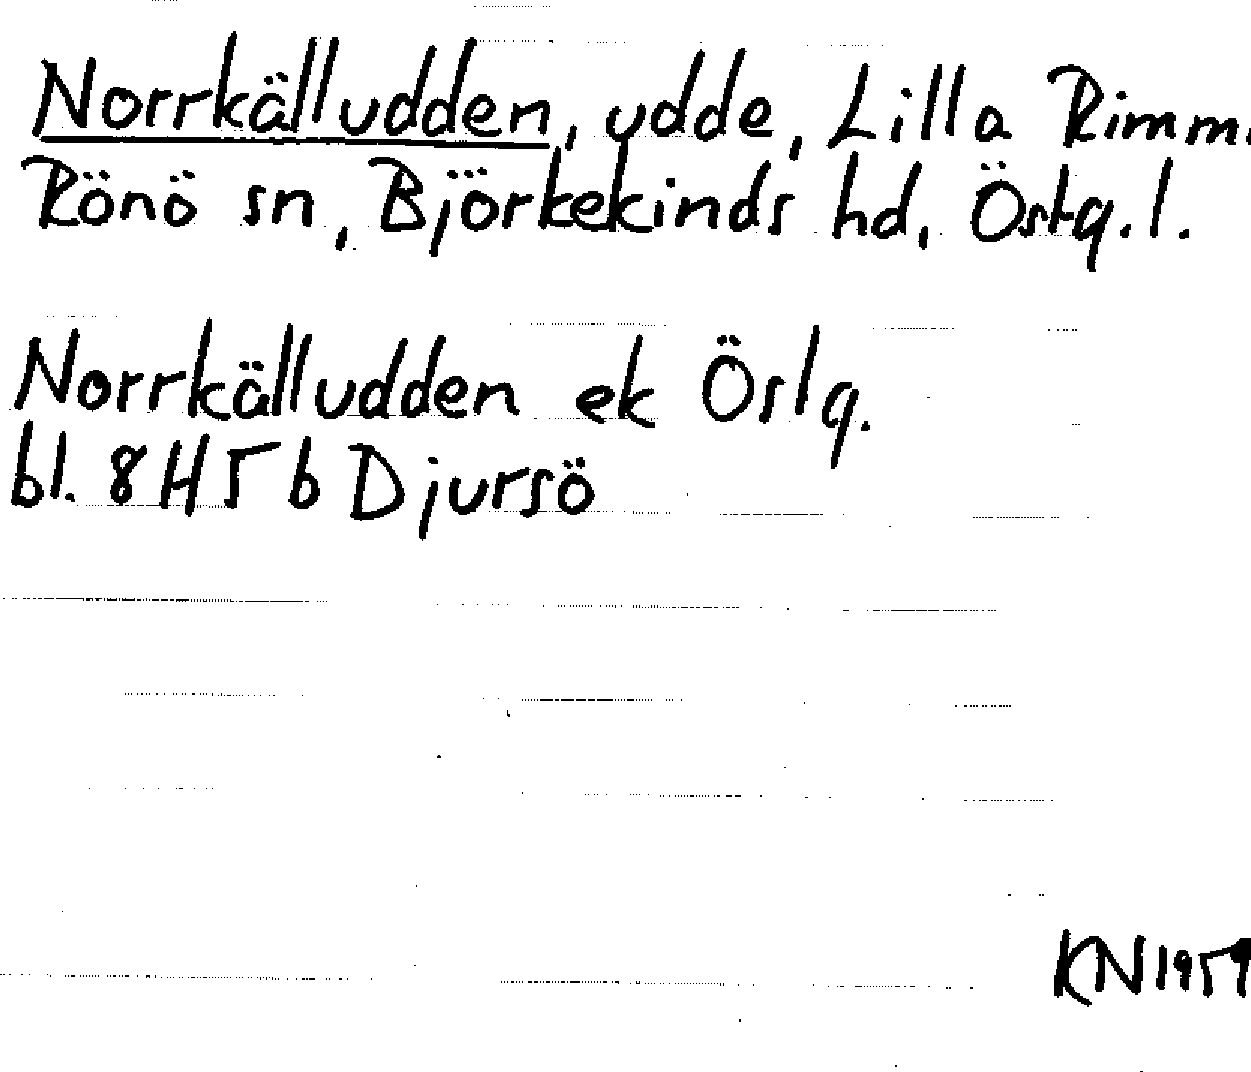 Norrkälludden, udde, Lilla Rimm
Rönö sn, Björkekinds hd, Östg. l.
Norrkälludden ek Östg.
bl. 8H5b Djursö